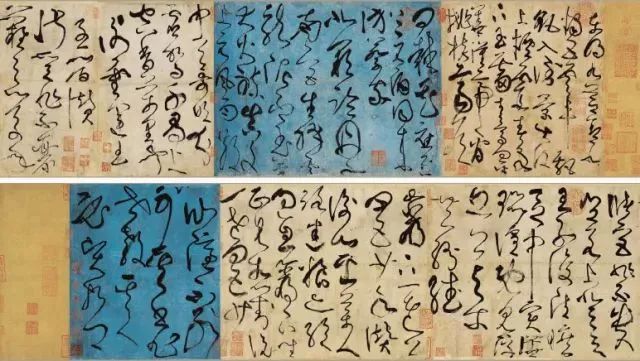 東明九芝蓋北
燭五雲車飄
飖入倒景出沒
上煙霞春泉
下玉霤青鳥向金
華漢帝看
桃核齊侯問棘
花應逐上元
酒同來
訪蔡家
北闕臨丹
水南宮生絳
雲龍泥印玉
簡大火煉真文
上元風雨散
中天哥吹分
虛駕千尋上
空香萬里聞
謝靈運王
子晉贊
淑質非不麗
難以之百年
儲宮非不貴
豈若上登天
王子復清曠
區中實譁
囂喧既見浮
丘公與爾
共紛繙
巖下一老公
四五少年贊
衡山採藥人
路迷糧亦絕
過息巖下坐
正見相對說
一老四五少
仙隱不可別
其書非世教
其人必賢哲